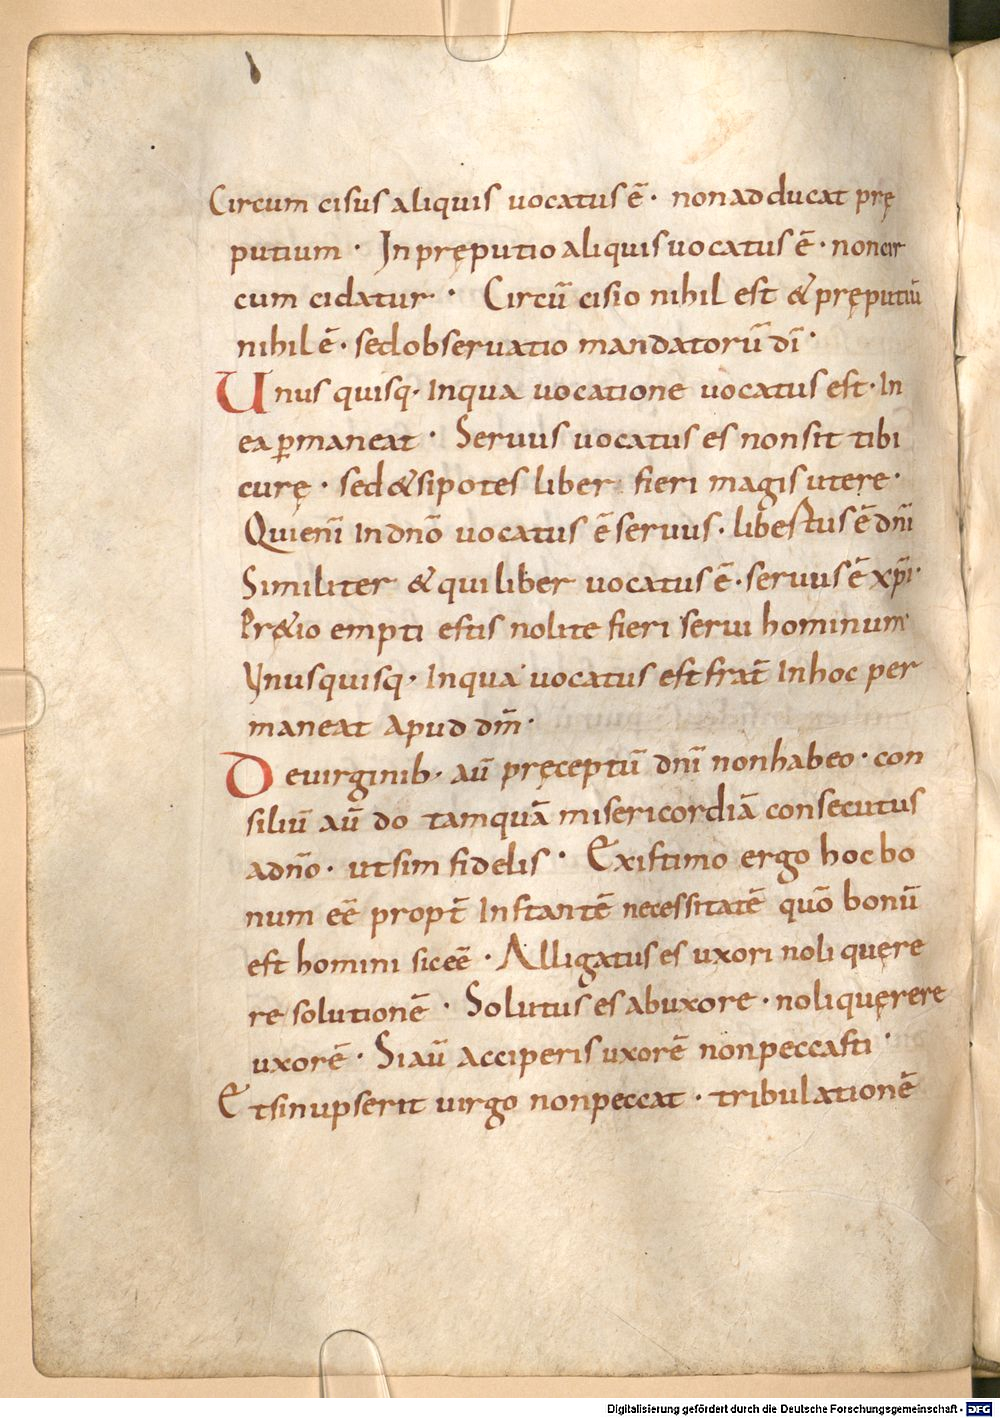 Circum cisus aliquis uocatus ē· non ad ducat prę
putium · In pręputio aliquis uocatus ē · non cir
cum cidatur · Circū cisio nihil est & pręputiū
nihil ē · sed obseruatio mandatorū dī ·
Unus quisq· In qua uocatione uocatus est · In
ea ꝑmaneat · Seruus uocatus es non sit tibi
curę · sed & si potes liber fieri magis utere ·
Qui enī In dnō uocatus ē seruus · libertus ē dnī
Similiter & qui liber uocatus ē · seruus ē xp̄i ·
Pr&io empti estis nolite fieri serui hominum
Unusquisq · In qua uocatus est frat̄ In hoc per
maneat apud dm̄ ·
De uirginib· aū pręceptū dnī non habeo · con
siliū aū do tamquā misericordiā consecutus
a dnō · ut sim fidelis · Existimo ergo hoc bo
num eē propt̄ Instantē necessitatē quō bonū
est homini sic eē · Alligatus es uxori noli quęre
re solutionē · Solutus es ab uxore · noli quęrere
uxorē · Si aū acciperis uxorē non peccasti ·
Et si nupserit uirgo non peccat · tribulationē
Digitalisierung gefördert durch die Deutsche Forschungsgemeinschaft - DFG